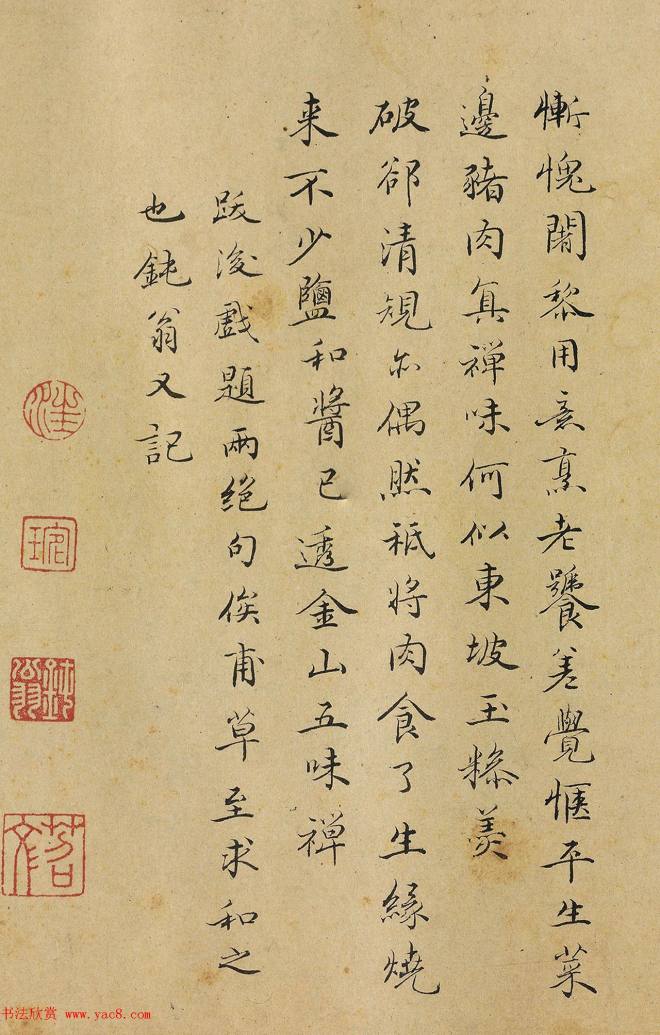 慚愧闍黎用意烹老饕差覺愜平生菜
邊豬肉真禪味何似東坡玉糝羹
破卻清規亦偶然秪將肉食了生緣燒
来不少鹽和醬已透金山五味禪
跋後戲題兩絕句俟甫草至求和之
也鈍翁又記
汪
琬
鈍翁
苕文
书法欣赏 www.yac8.com